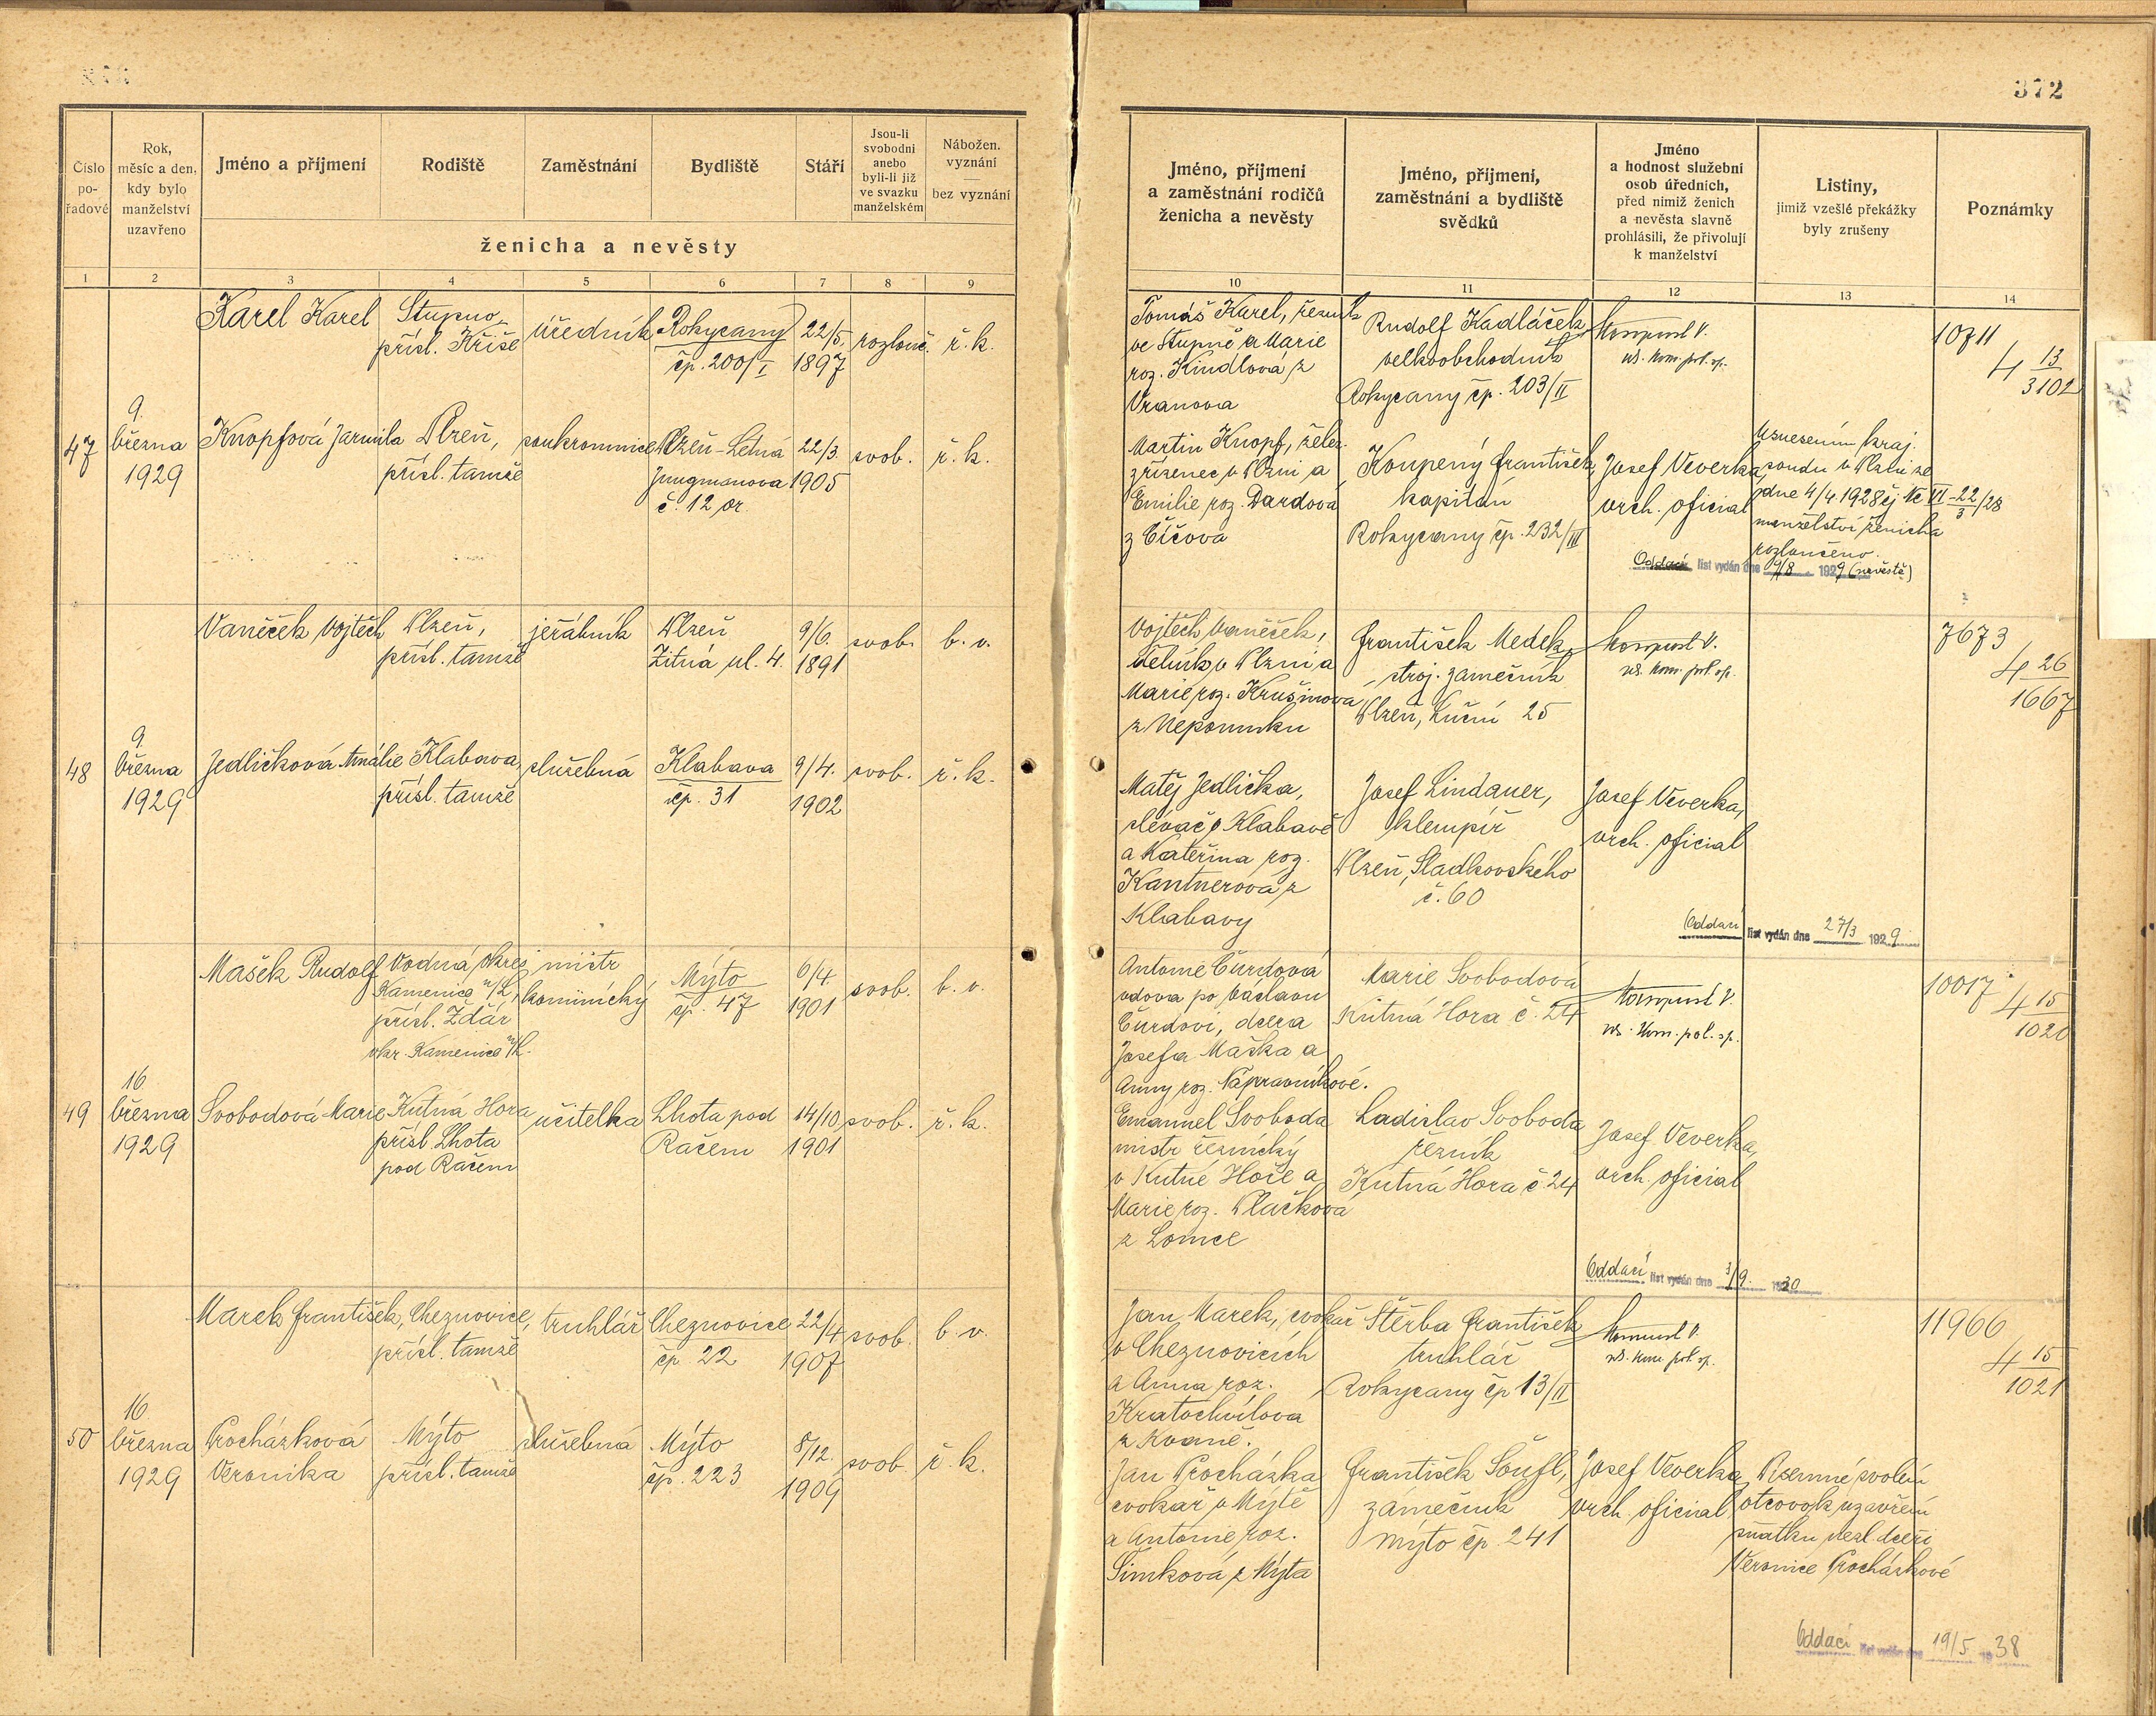 372
Číslo po-řadové
Rok, měsíc a den, kdy bylo manželství uzavřeno
Jméno a příjmení
Rodiště
Zaměstnání
Bydliště
Stáří
Jsou-li svobodni anebo byli-li již ve svazku manželském
Nábožen. vyznání — bez vyznání
ženicha a nevěsty
Jméno, příjmení a zaměstnání rodičů ženicha a nevěsty
Jméno, příjmení, zaměstnání a bydliště svědků
Jméno a hodnost služební osob úředních, před nimiž ženich a nevěsta slavně prohlásili, že přivolují k manželství
Listiny, jimiž vzešlé překážky byly zrušeny
Poznámky
1 2 3 4 5 6 7 8 9
10 11 12 13 14
Karel Karel
Stupno
přísl. Kříše
úředník
Rokycany
čp. 200/I
22/5.
1897
rozlouč.
ř. k.
Tomáš Karel, řezník
ve Stupně a Marie
roz. Kindlová z
Vranova
Rudolf Kadláček
velkoobchodník
Rokycany čp. 203/II
10711
4 13
3102
47
9.
března
1929
Knopfová Jarmila
Plzeň,
přísl. tamže
soukromnice
Plzeň-Letná
Jungmanova
č. 12 or.
22/3.
1905
svob.
ř. k.
Martin Knopf, želez.
zřízenec v Plzni a
Emilie roz. Dardová
z Číčova
Koupený František
kapitán
Rokycany čp. 232/III
Josef Veverka,
vrch. oficial
Usnesením kraj.
soudu v Plzni ze
dne 4/4 1928 čj. Nc VI-22/28
3
manželství ženicha
rozloučeno.
Oddací list vydán dne 9/8 1929 (nevěstě)
Vaněček Vojtěch
Plzeň,
přísl. tamže
jeřábník
Plzeň
Žitná ul. 4.
9/6.
1891
svob.
b. v.
Vojtěch Vaněček,
dělník v Plzni a
Marie roz. Krušinová
z Nepomuku
František Medek,
stroj. zámečník
Plzeň, Luční 25
7673
4 26
1667
48
9.
března
1929
Jedličková Amálie
Klabava,
přísl. tamže
služebná
Klabava
čp. 31
9/4.
1902
svob.
ř. k.
Matěj Jedlička,
slévač v Klabavě
a Kateřina roz.
Kantnerová z
Klabavy
Josef Lindauer,
klempíř
Plzeň, Sladkovského
č. 60
Josef Veverka,
vrch. oficial
Oddací list vydán dne 27/3 1929
Mašek Rudolf
Vodná, okres
Kamenice n/L,
přísl. Ždár
okr. Kamenice n/L.
mistr
kominický
Mýto
čp. 47
6/4.
1901
svob.
b. v.
Antonie Čurdová
vdova po Václavu
Čurdovi, dcera
Josefa Maška a
Anny roz. Nápravníkové.
Marie Svobodová
Kutná Hora č. 24
10017
4 15
1020
49
16.
března
1929
Svobodová Marie
Kutná Hora
přísl. Lhota
pod Račem
učitelka
Lhota pod
Račem
14/10.
1901
svob.
ř. k.
Emanuel Svoboda
mistr řeznický
v Kutné Hoře a
Marie roz. Plačková
z Lomce
Ladislav Svoboda
řezník
Kutná Hora č. 24
Josef Veverka,
vrch. oficial
Oddací list vydán dne 3/9. 1930
Marek František,
Cheznovice,
přísl. tamže
truhlář
Cheznovice
čp. 22
22/4
1907
svob.
b. v.
Jan Marek, cvokař
v Cheznovicích
a Anna roz.
Kratochvílová
z Kvaně.
Štěrba František
truhlář
Rokycany čp 13/II
11966
4 15
1021
50
16.
března
1929
Procházková
Veronika
Mýto
přísl. tamže
služebná
Mýto
čp. 223
8/12.
1909
svob.
ř. k.
Jan Procházka
cvokař v Mýtě
a Antonie roz.
Šimková z Mýta
František Šoufl,
zámečník
Mýto čp. 241
Josef Veverka,
vrch. oficial
Písemné svolení
otcovo k uzavření
sňatku nezl. dceři
Veronice Procházkové
Oddací list vydán dne 19/5 1938